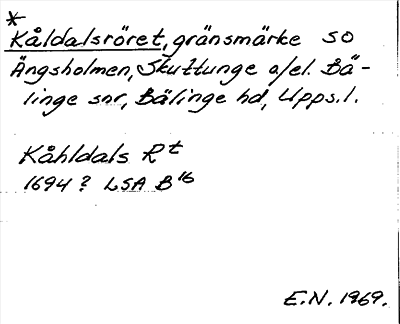 *
Kåldalsröret, gränsmärke SO
Ängsholmen, Skuttunge o/el. Bä-
linge snr, Bälinge hd, Upps. l.
Kåhldals Rt
1694? LSA B16
E.N. 1969.